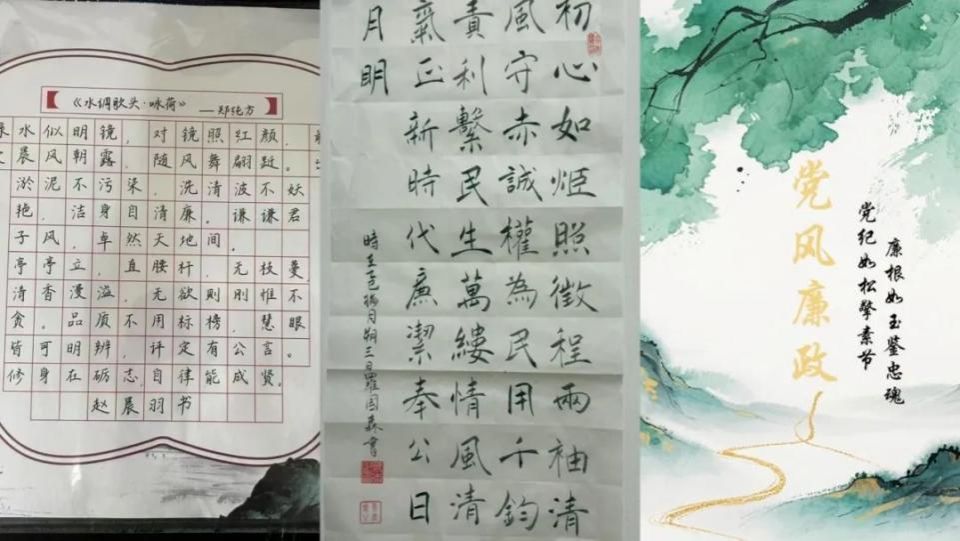 《水调歌头·咏荷》 ——郑纯方
水似明镜，对镜照红颜，
晨风朝露，随风舞翩跹。
淤泥不污染，洗清波不妖
艳，洁身自清廉。谦谦君
子风，卓然天地间。
亭亭立，直腰杆，无枝蔓
清香漫溢，无欲则刚惟不
贪。品质不用标榜，慧眼
皆可明辨，评定有公言。
修身在砺志，自律能成贤。
赵晨羽书
初心如炬照徵程兩袖清
風守赤誠權為民用千鈞
責利繫民生萬縷情風清
氣正新時代廉潔奉公日
月明
時乙巳月朔三日羅国森書
党风廉政
廉根如玉鉴忠魂
党纪如松擎素节